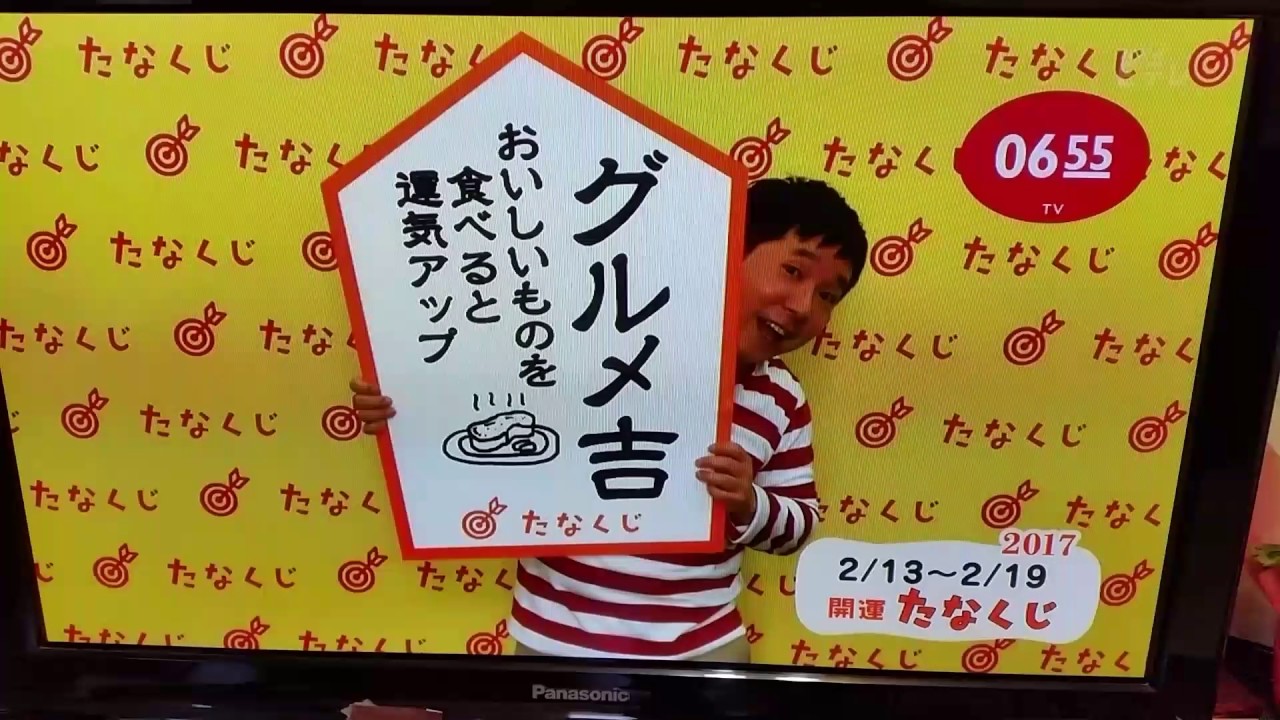 グルメ吉
おいしいものを
食べると
運気アップ
たなくじ
0655
TV
2017
2/13〜2/19
開運 たなくじ
たなくじ たなくじ たなくじ たなくじ
なくじ たなくじ たなく なく
たなくじ たなくじ
たなくじ たなく たなくじ たなく
たなくじ たなくじ
たなくじ たなく なくじ たなく
たなくじ
たなくじ たなくじ たなく
Panasonic